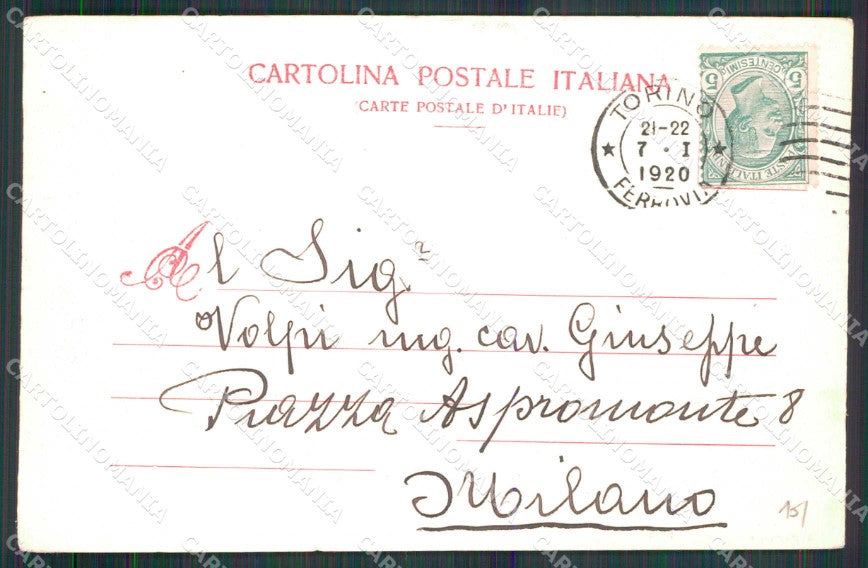 CARTOLINA POSTALE ITALIANA
(CARTE POSTALE D'ITALIE)
TORINO
21-22
7 · I
1920
FERROVIA
CENTESIMI 5
5
POSTE ITALIANE
Al Sig.r
Volpi ing. cav. Giuseppe
Piazza Aspromonte 8
Milano
15/
CARTOLINOMANIA